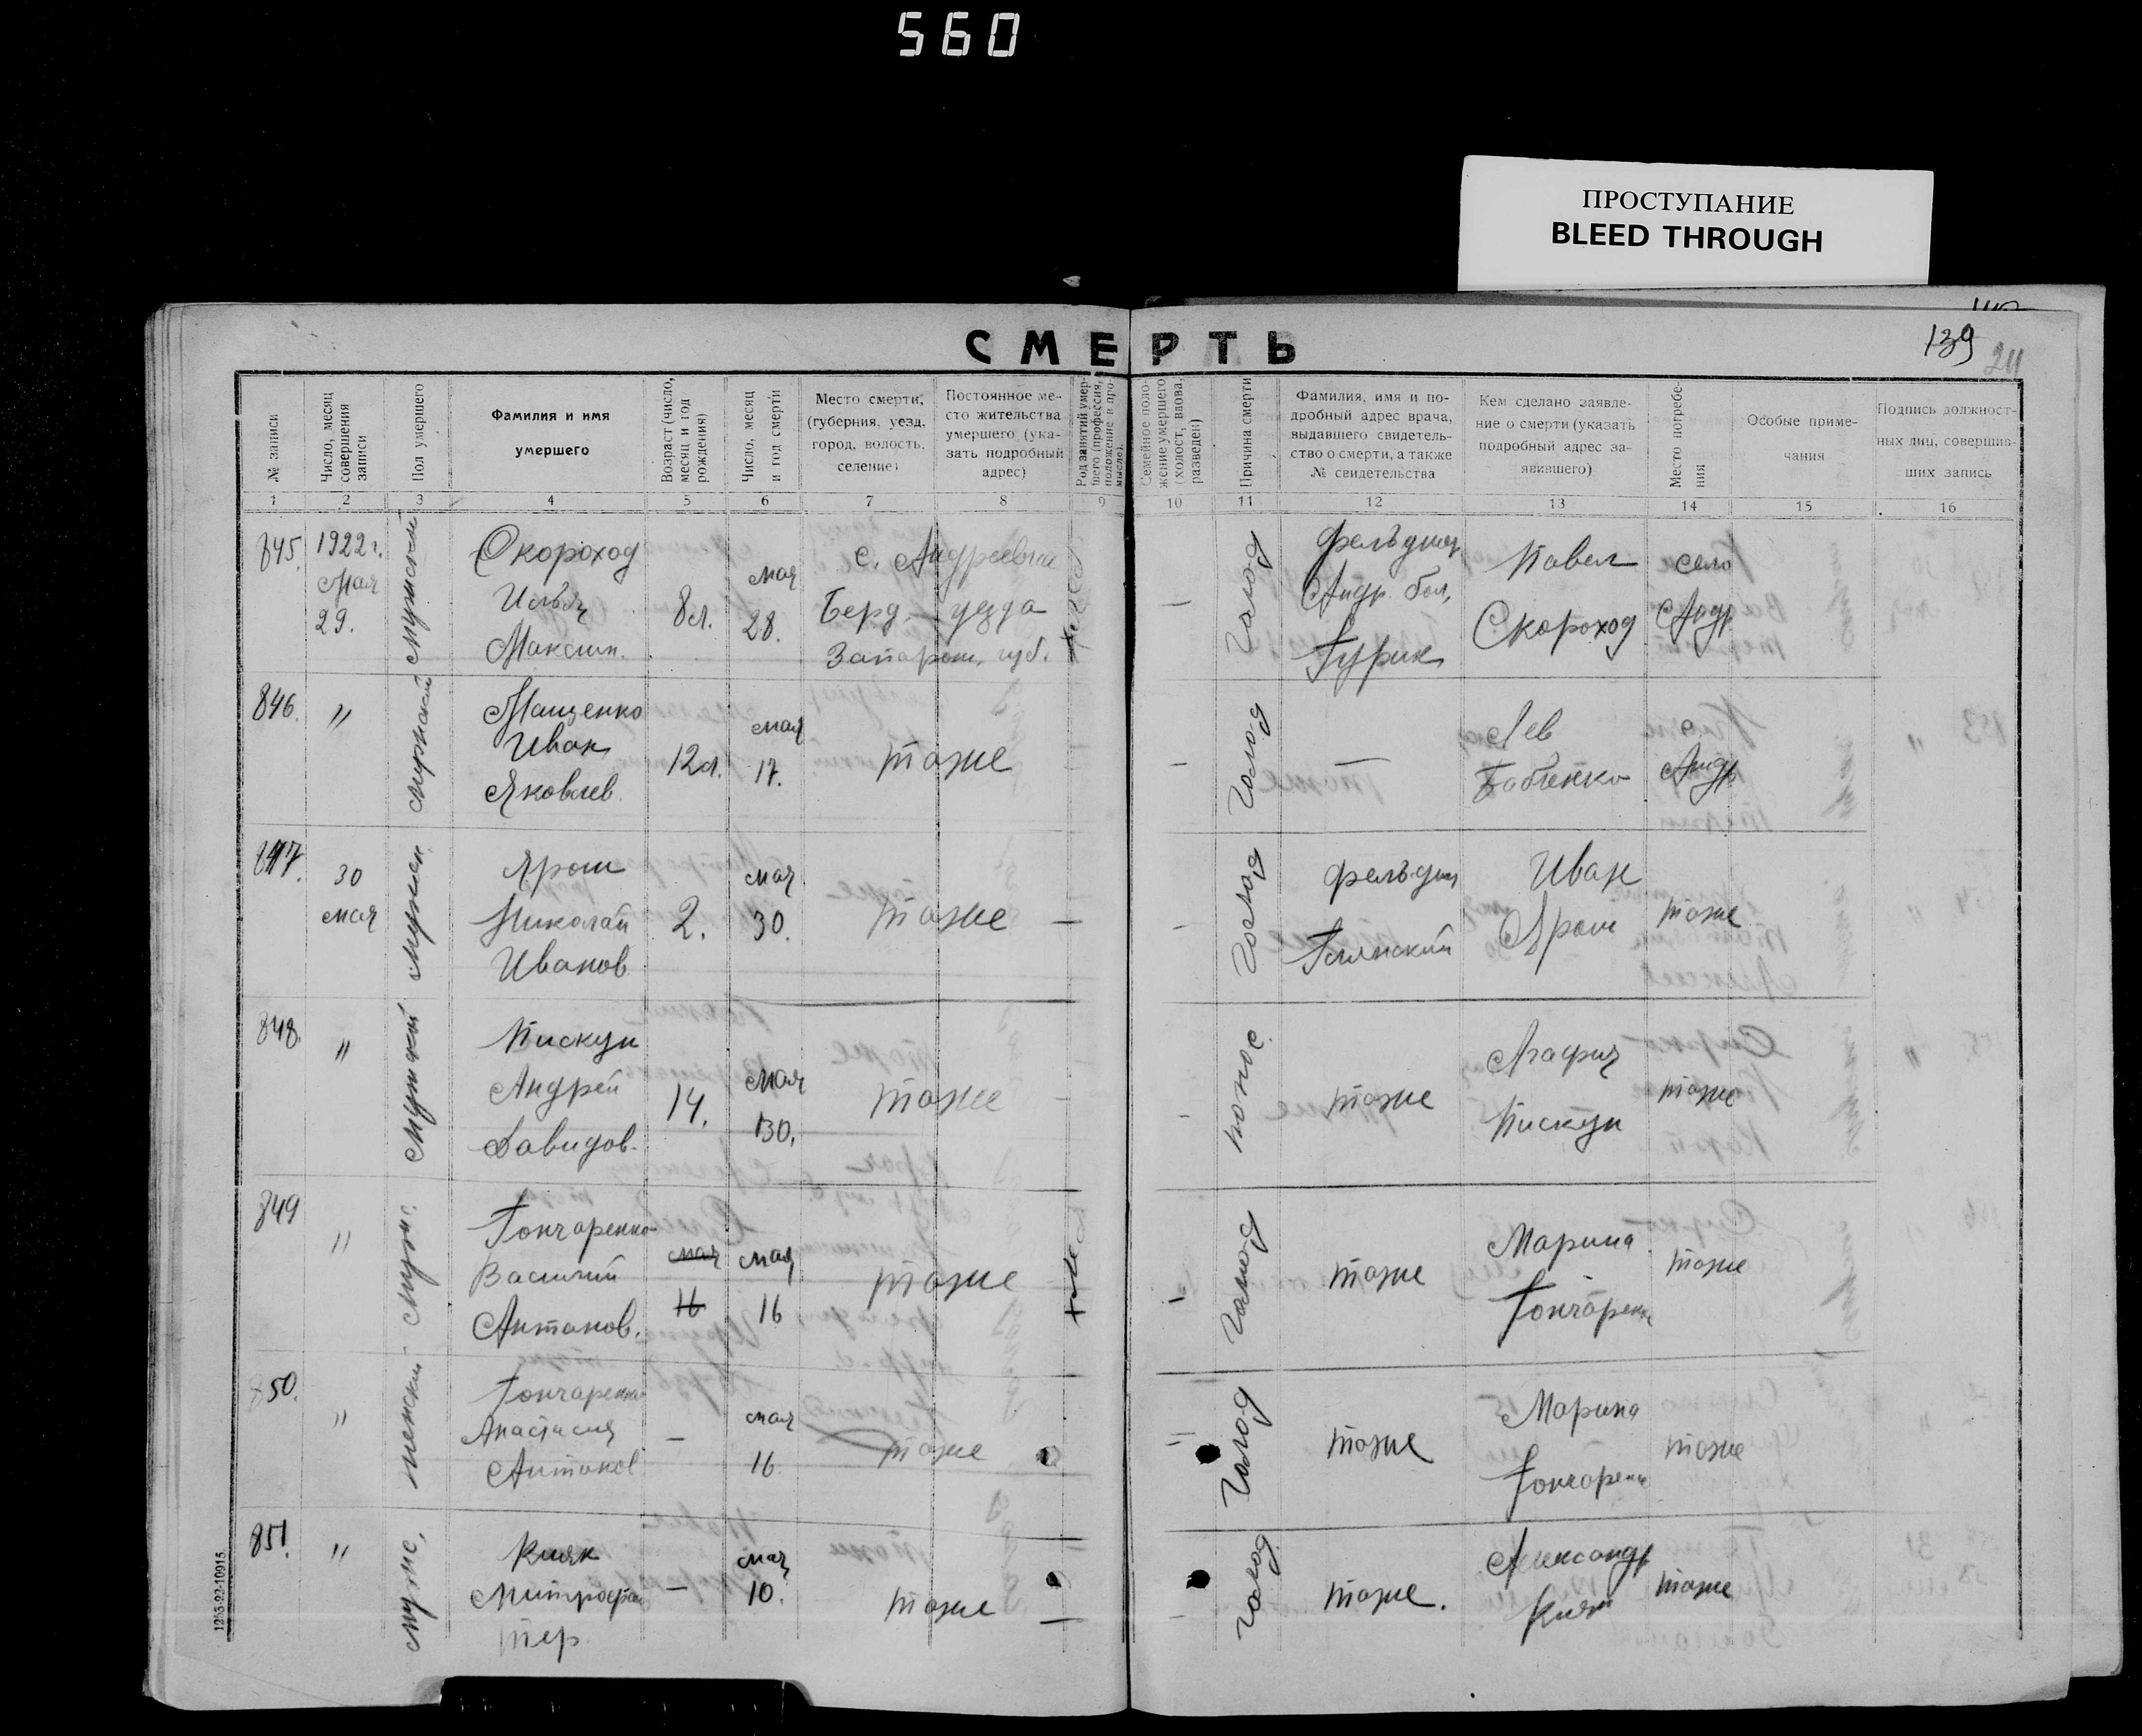 560
ПРОСТУПАНИЕ
BLEED THROUGH
139
СМЕРТЬ
№ записи
Число, месяц совершения записи
Пол умершего
Фамилия и имя
умершего
Возраст (число, месяц и год рождения)
Число, месяц и год смерти
Место смерти,
(губерния, уезд,
город, волость,
селение)
Постоянное ме-
сто жительства
умершего (ука-
зать подробный
адрес)
Род занятий умер-
шего (профессия,
положение в про-
мысле).
Семейное поло-
жение умершего
(холост, вдова,
разведен)
Причина смерти
Фамилия, имя и по-
дробный адрес врача,
выдавшего свидетель-
ство о смерти, а также
№ свидетельства
Кем сделано заявле-
ние о смерти (указать
подробный адрес за-
явившего)
Место погребе-
ния
Особые приме-
чания
Подпись должност-
ных лиц, совершив-
ших запись
1 2 3 4 5 6 7 8 9 10 11 12 13 14 15 16
845.
1922 г.
Мая
29.
Мужской
Скороход
Илья
Максим.
8 л.
мая
28.
с. Андреевка
Берд. уезда
Запорож. губ.
—
Голод
фельдшер
Андр. бол.
Гурик
Павел
Скороход
село
Андр.
846.
"
Мужской
Мащенко
Иван
Яковлев.
12 л.
мая
17.
тоже
—
Голод
—
Лев
Бабенко
с.
Андр.
847.
30
мая
Мужск.
Ярош
Николай
Иванов
2.
мая
30.
тоже
—
-
Голод
фельдш
Иван
Ярош
тоже
848.
"
Мужской
Пискун
Андрей
Давидов.
14.
мая
30.
тоже
-
понос
тоже
Агафия
Пискун
тоже
849
"
Мужс.
Гончаренко
Василий
Антонов.
мая
16
мая
16
тоже
-
Голод
тоже
Марина
Гончарен
тоже
850.
"
Женский
Гончаренко
Анастасия
Антонов
—
мая
16
тоже
Голод
тоже
Марина
Гончарен
тоже
851.
"
мужс.
Кияк
Митрофан
Тер.
—
мая
10.
тоже
—
голод
тоже.
Александр
Кияк
тоже
12/5-22-10915